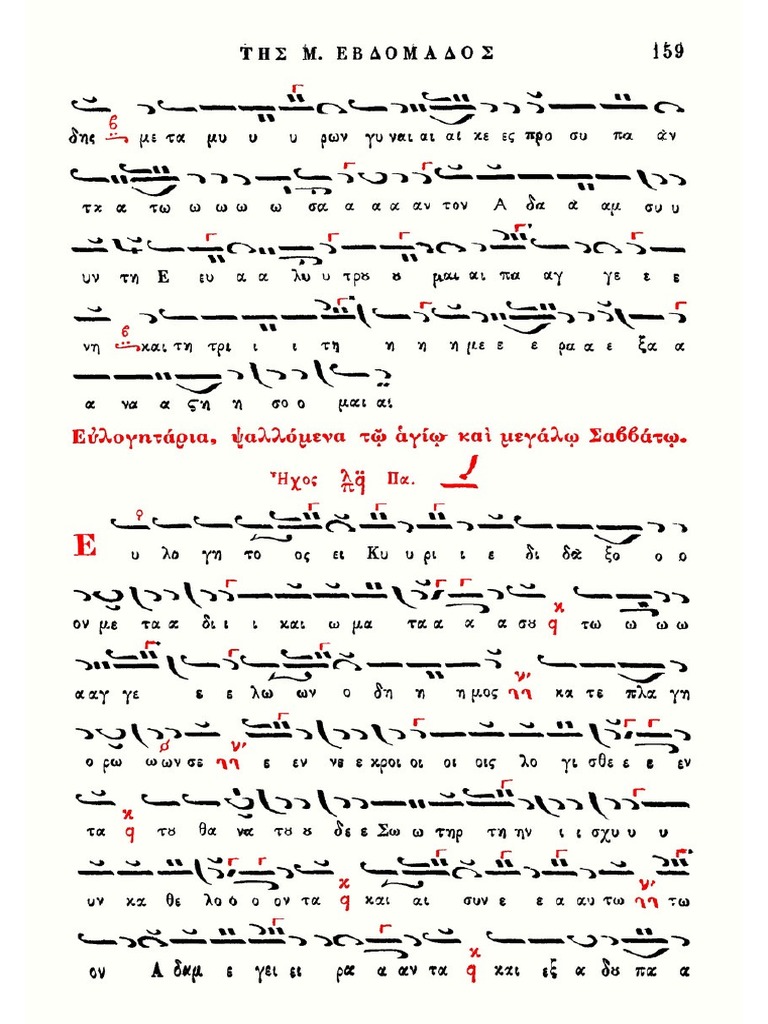 ΤΗΣ Μ. ΕΒΔΟΜΑΔΟΣ 159
δης με τα μυ υ υ ρων γυ ναι αι αι κε ες προ σου πα ἀν
τκ α τω ω ω ω ω σα α α α αν τον Α δα α αμ συ υ
υν τη Ε ευ α α λυ υ τρου ου μαι αι πα αγ γε ε ε
νη και τη τρι ι ι τη η η η με ε ε ρα α ε ξα α
α να α ςη η σο ο μαι αι
Εὐλογητάρια, ψαλλόμενα τῷ ἁγίῳ καὶ μεγάλῳ Σαββάτῳ.
Ἦχος λ π q Πα.
Ε υ λο γη το ος ει Κυ υ ρι ι ε δι δα ξο ο ο
ον με τα α δι ι ι και ω μα τα α α α σου q τω ω ω ω
α αγ γε ε ε λω ων ο δη η η μος κα τε πλα γη
ο ρω ω ων σε ε εν νε ε κροι οι οι οις λο γι σθε ε ε εν
τα q του θα να του ου δε ε Σω ω τηρ τη ην ι ι σχυ υ υ
υν κα θε λο ο ο ον τα q και αι συν ε ε α αυ τω τω
ον Α δαμ ε γει ει ρα α αν τα q και εξ α δου πα α